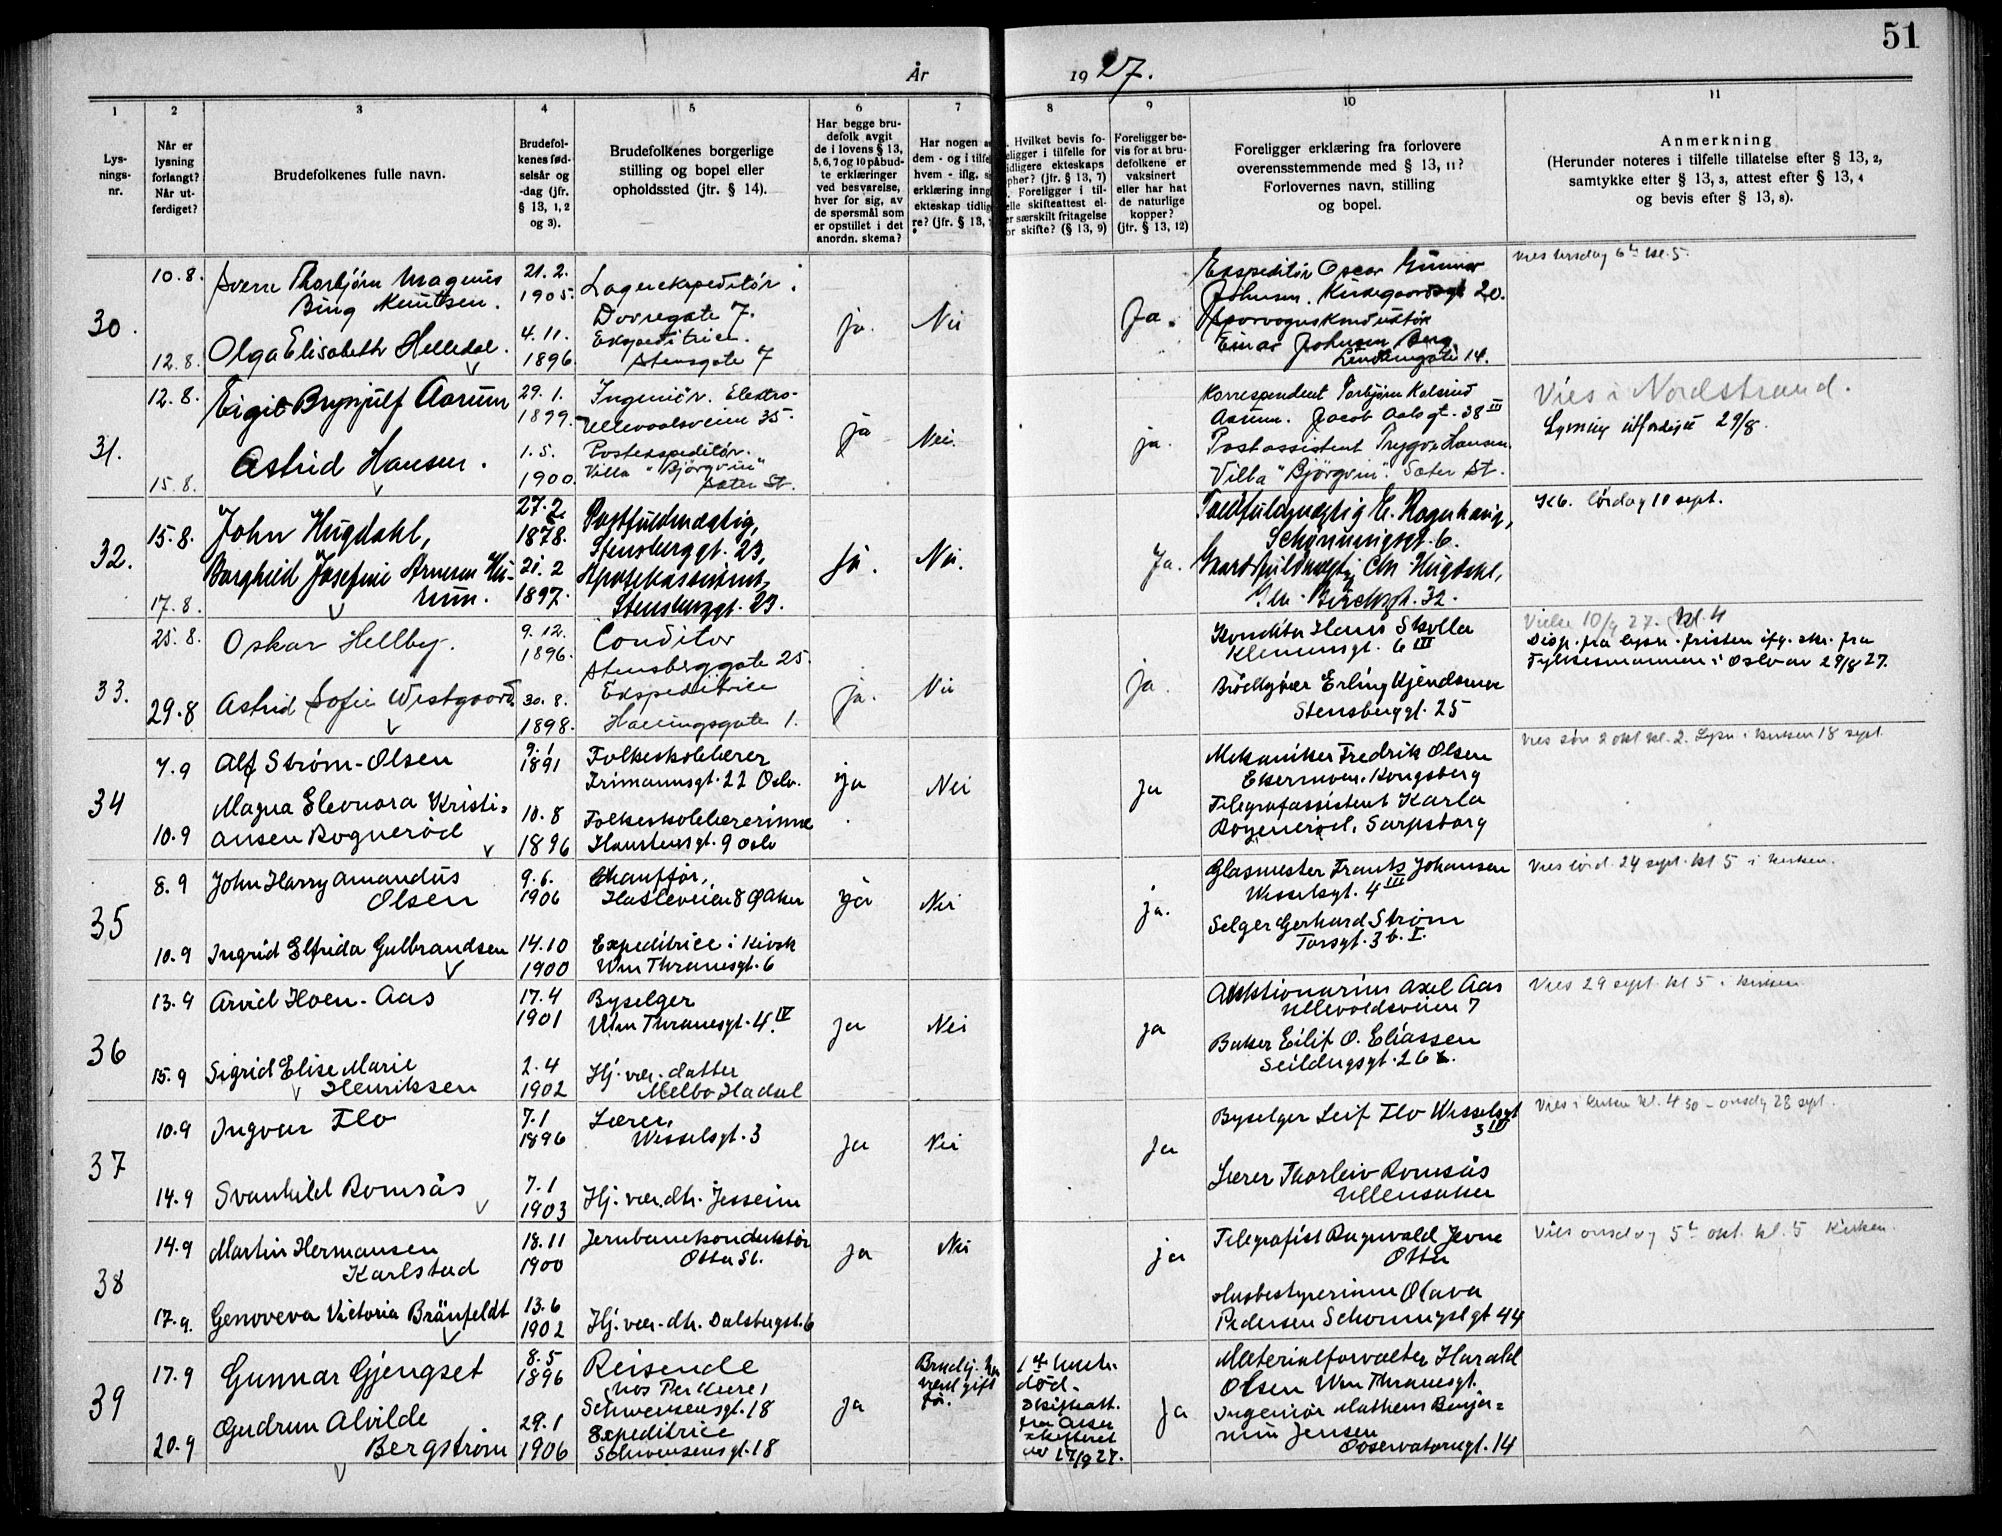 51
År 1927.
1 2 3 4 5 6 7 8 9 10 11
Lysningsnr.
Når er lysning forlangt? Når utferdiget?
Brudefolkenes fulle navn.
Brudefolkenes fødselsår og -dag (jfr. § 13, 1, 2 og 3).
Brudefolkenes borgerlige stilling og bopel eller opholdssted (jfr. § 14).
Har begge brudefolk avgit de i lovens § 13, 5, 6, 7 og 10 påbudte erklæringer ved besvarelse, hver for sig, av de spørsmål som er opstillet i det anordn. skema?
Har nogen dem - og i hvem - iflg. erklæring ekteskap re? (jfr. § 13,
Hvilket bevis fo- i tilfelle for ekteskaps (jfr. § 13, 7) Foreligger i til- skifteattest el- særskilt fritagelse skifte? (§ 13, 9)
Foreligger bevis for at brudefolkene er vaksinert eller har hat de naturlige kopper? (jfr. § 13, 12)
Foreligger erklæring fra forlovere overensstemmende med § 13, 11? Forlovernes navn, stilling og bopel.
Anmerkning
(Herunder noteres i tilfelle tillatelse efter § 13, 2, samtykke efter § 13, 3, attest efter § 13, 4 og bevis efter § 13, 8).
30.
10.8.
12.8.
Sverre Thorbjørn Magnus
Bing Knutsen.
Olga Elisabeth Helledal.
21.2.
1905.
4.11.
1896
Lagerekspeditør
Dovregate 7.
Ekspeditrice.
Stensgate 7
ja.
Nei
Ja.
Ekspeditør Oscar Gunnar
Johnsen. 20.
Sporvognskonduktør
Einar Johnsen Berg.
14.
Vies tirsdag 6te kl. 5.
31.
12.8.
15.8.
Eigil Brynjulf Aarum
Astrid Hansen.
29.1.
1899.
1.5.
1900.
Ingeniør. Elektro-
Ullevaalsveien 35.
Postekspeditør.
Villa "Bjørgvin"
Sæter St.
ja
Nei.
ja.
Korrespondent Torbjørn
Aarum. Jacob Aalsgt. 38 III
Postassistent Trygve Hansen
Villa "Bjørgvin". Sæter St.
Vies i Nordstrand.
Lysning utferdiget 29/8.
32.
15.8.
17.8.
John Hugdahl,
Borghild Josefine Arnesen
27.2.
1878.
21.2
1897.
Postfuldmægtig,
Stensberggt. 23,
Stensberggt. 23.
ja.
Nei.
Ja.
Schønningsgt. 6.
Chr. Hugdahl,
32.
lørdag 10 sept.
33.
25.8.
29.8
Oskar Hellby.
Astrid Sofie Westgaard
9.12.
1896.
30.8.
1898.
Conditor
Stensberggate 25.
Ekspeditrice
1.
ja.
Nei
ja.
Konditor Hans
Klemensgt. 6 III
Erling
Stensberggt. 25
Vielse 10/9 27. Kl. 4
Disp. fra lysn. fristen ifg. skr. fra
Fylkesmannen i Oslo av 29/8 27.
34
7.9
10.9
Alf Strøm-Olsen
Magna Eleonora Kristi=
ansen Rognerød
9.1
1891
10.8
1896
Folkeskolelærer
Frimannsgt. 22 Oslo.
Folkeskolelærerinne
9 Oslo
ja
Nei
Ja
Mekaniker Fredrik Olsen
Kongsberg
Telegrafassistent Karla
Rognerød, Sarpsborg
Vies søn 2 okt kl. 2. Lysn. i kirken 18 sept.
35
8.9
10.9
John Harry Amandus
Olsen
Ingrid Elfrida Gulbrandsen
9.6.
1906
14.10
1900
Chauffør,
Hasleveien 8 Ø Aker
Expeditrice i Kiosk
Wm Thranesgt. 6
ja
Nei
ja.
Glasmester Frants Johansen
Wesselsgt. 4 III
Selger Gerhard Strøm
Torsgt. 3 b. I.
Vies lørd. 24 sept. kl 5 i kirken.
36
13.9
15.9
Arvid Hoen-Aas
Sigrid Elise Marie
Henriksen
17.4
1901
2.4
1902
Byselger
Wm Thranesgt. 4. IV
Hj. vær. datter
Melbo Hadsel
ja
Nei
ja
Auktionarius Axel Aas
Ullevoldsveien 7
Baker Eilif O. Eliassen
Seildugsgt. 26
Vies 29 sept kl 5 i kirken
37
10.9
14.9
Ingvar Flo
Svanhild Romsås
7.1
1896
7.1
1903
Lærer,
Wesselsgt. 3
Hj. vær. dtr. Jesseim
Ja
Nei
Ja
Byselger Leif Flo Wesselsgt
3 III
Lærer Thorleiv Romsås
Ullensaker
Vies i kirken kl. 4 30 - onsdag 28 sept.
38
14.9
17.9.
Martin Hermansen
Karlstad
Genoveva Victoria Brännfeldt
18.11
1900
13.6
1902
Jernbanekonduktør
Otta St.
Hj. vær. dtr. Dalsbergst. 6
ja
Nei
ja
Telegrafist Ragnvald Jevne
Otta
Husbestyrerinne Olava
Pedersen Schønningsgt 44
Vies onsdag 5te okt. kl. 5 Kirken.
39
17.9
20.9
Gunnar Gjengset
Gudrun Alvilde
Bergstrøm
8.5
1896
29.1
1906
Reisende
hos Per Kure,
Schwensensgt. 18
Expeditrice
Schwensensgt. 18
ja
Brudg. har
været gift
før.
1ste hustr.
død.
Skifteatt.
fra Aker
skifteret
av 17/9 27.
Ja
Materialforvalter Harald
Olsen Wm Thranesgt.
Ingeniør Mathens Benja=
min Jensen
Observatoriegt. 14